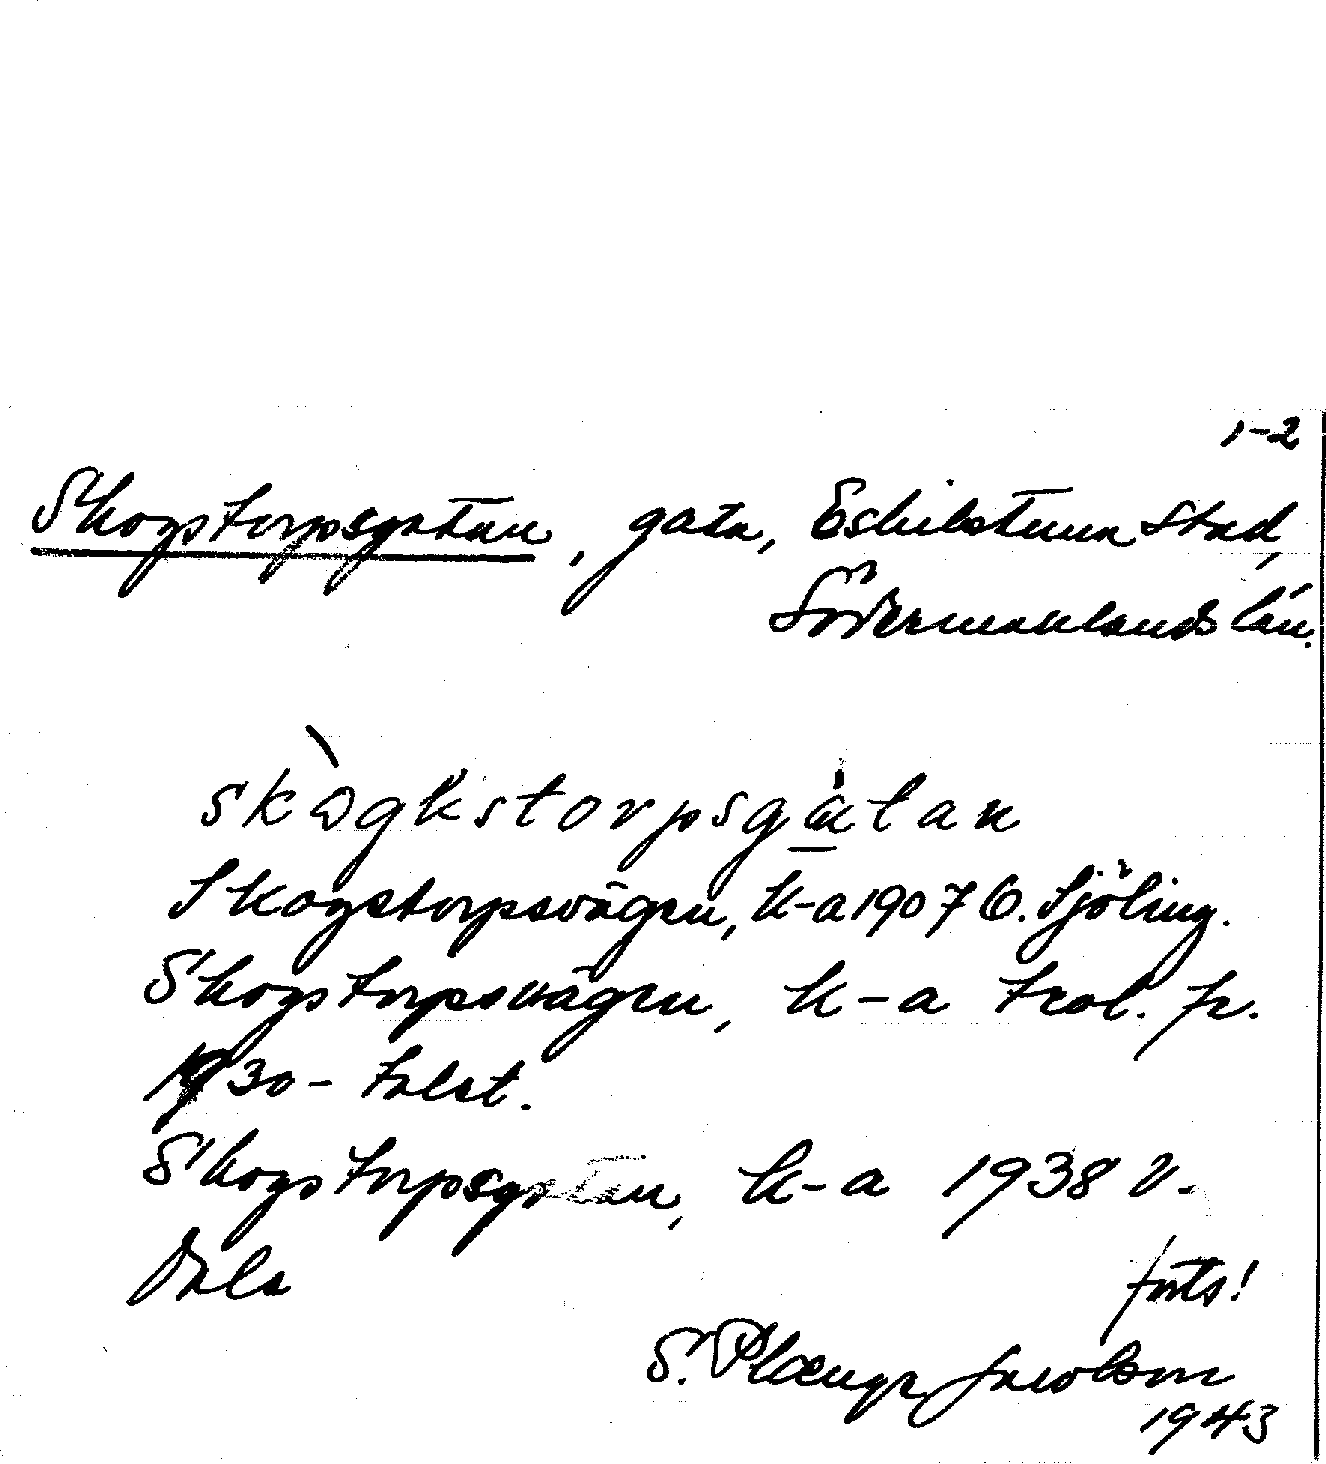 1-2
Skogstorpsgatan, gata, Eskilstuna stad,
Södermanlands län.
skògkstorpsgatan
Skogstorpsvägen, k-a 1907 O. Sjöling.
Skogstorpsvägen, k-a trol. fr.
1930-talet.
Skogstorpsgatan, k-a 1938 V.
Dala
forts!
S. Jacobson
1943